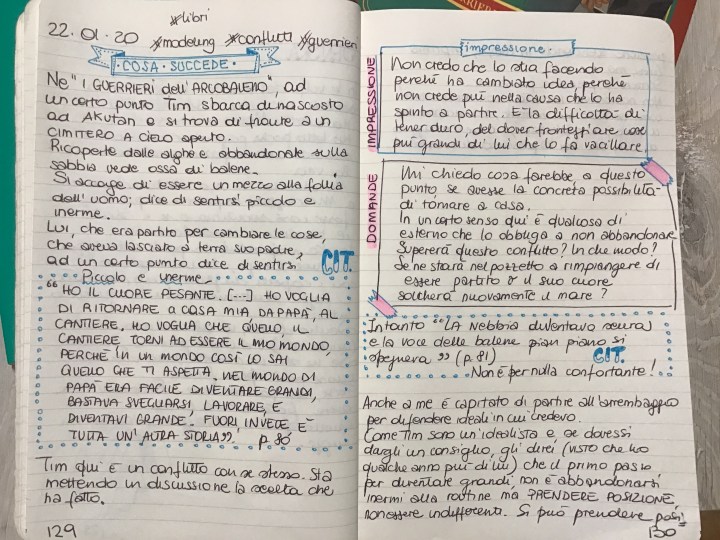 #libri
22.01.20 #modeling #conflitti #guerrieri
COSA SUCCEDE.
Ne "I GUERRIERI dell'ARCOBALENO", ad
un certo punto Tim sbarca di nascosto
ad AKUTAN e si trova di fronte a un
CIMITERO A CIELO aperto.
Ricoperte dalle alghe e abbandonate sulla
sabbia vede ossa di balene.
Si accorge di essere in mezzo alla follia
dell'uomo; dice di sentirsi piccolo e
inerme.
Lui, che era partito per cambiare le cose,
che aveva lasciato a terra suo padre,
ad un certo punto dice di sentirsi
Piccolo e inerme.
CIT.
"HO IL CUORE PESANTE. [...] HO VOGLIA
DI RITORNARE A CASA MIA, DA PAPÀ, AL
CANTIERE. HO VOGLIA CHE QUELLO, IL
CANTIERE TORNI AD ESSERE IL MIO MONDO,
PERCHÉ IN UN MONDO COSÌ LO SAI
QUELLO CHE TI ASPETTA. NEL MONDO DI
PAPÀ ERA FACILE DIVENTARE GRANDI,
BASTAVA SVEGLIARSI, LAVORARE E
DIVENTAVI GRANDE. FUORI INVECE È
TUTTA UN'ALTRA STORIA". p. 80
Tim qui è in conflitto con se stesso. Sta
mettendo in discussione la scelta che
ha fatto.
129
impressione.
IMPRESSIONE
Non credo che lo stia facendo
perché ha cambiato idea, perché
non crede più nella causa che lo ha
spinto a partire. È la difficoltà di
tener duro, del dover fronteggiare cose
più grandi di lui che lo fa vacillare.
DOMANDE
Mi chiedo cosa farebbe a questo
punto se avesse la concreta possibilità
di tornare a casa.
In un certo senso qui è qualcosa di
esterno che lo obbliga a non abbandonare
Supererà questo conflitto? In che modo?
Se ne starà nel pozzetto a rimpiangere di
essere partito o il suo cuore
solcherà nuovamente il mare?
Intanto "LA Nebbia diventava scura
e la voce delle balene pian piano si
spegneva" (p. 81) CIT.
Non è per nulla confortante!
Anche a me è capitato di partire all'arrembaggio
per difendere ideali in cui credevo.
Come Tim sono un'idealista e, se dovessi
dargli un consiglio, gli direi (visto che ho
qualche anno più di lui) che il primo passo
per diventare grandi, non è abbandonarsi
inermi alla routine ma PRENDERE POSIZIONE,
non essere indifferenti. Si può prendere posi=
130